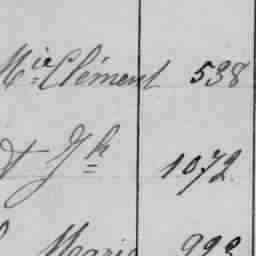 Mie Clément 538
& Jh 1072
Marie 993